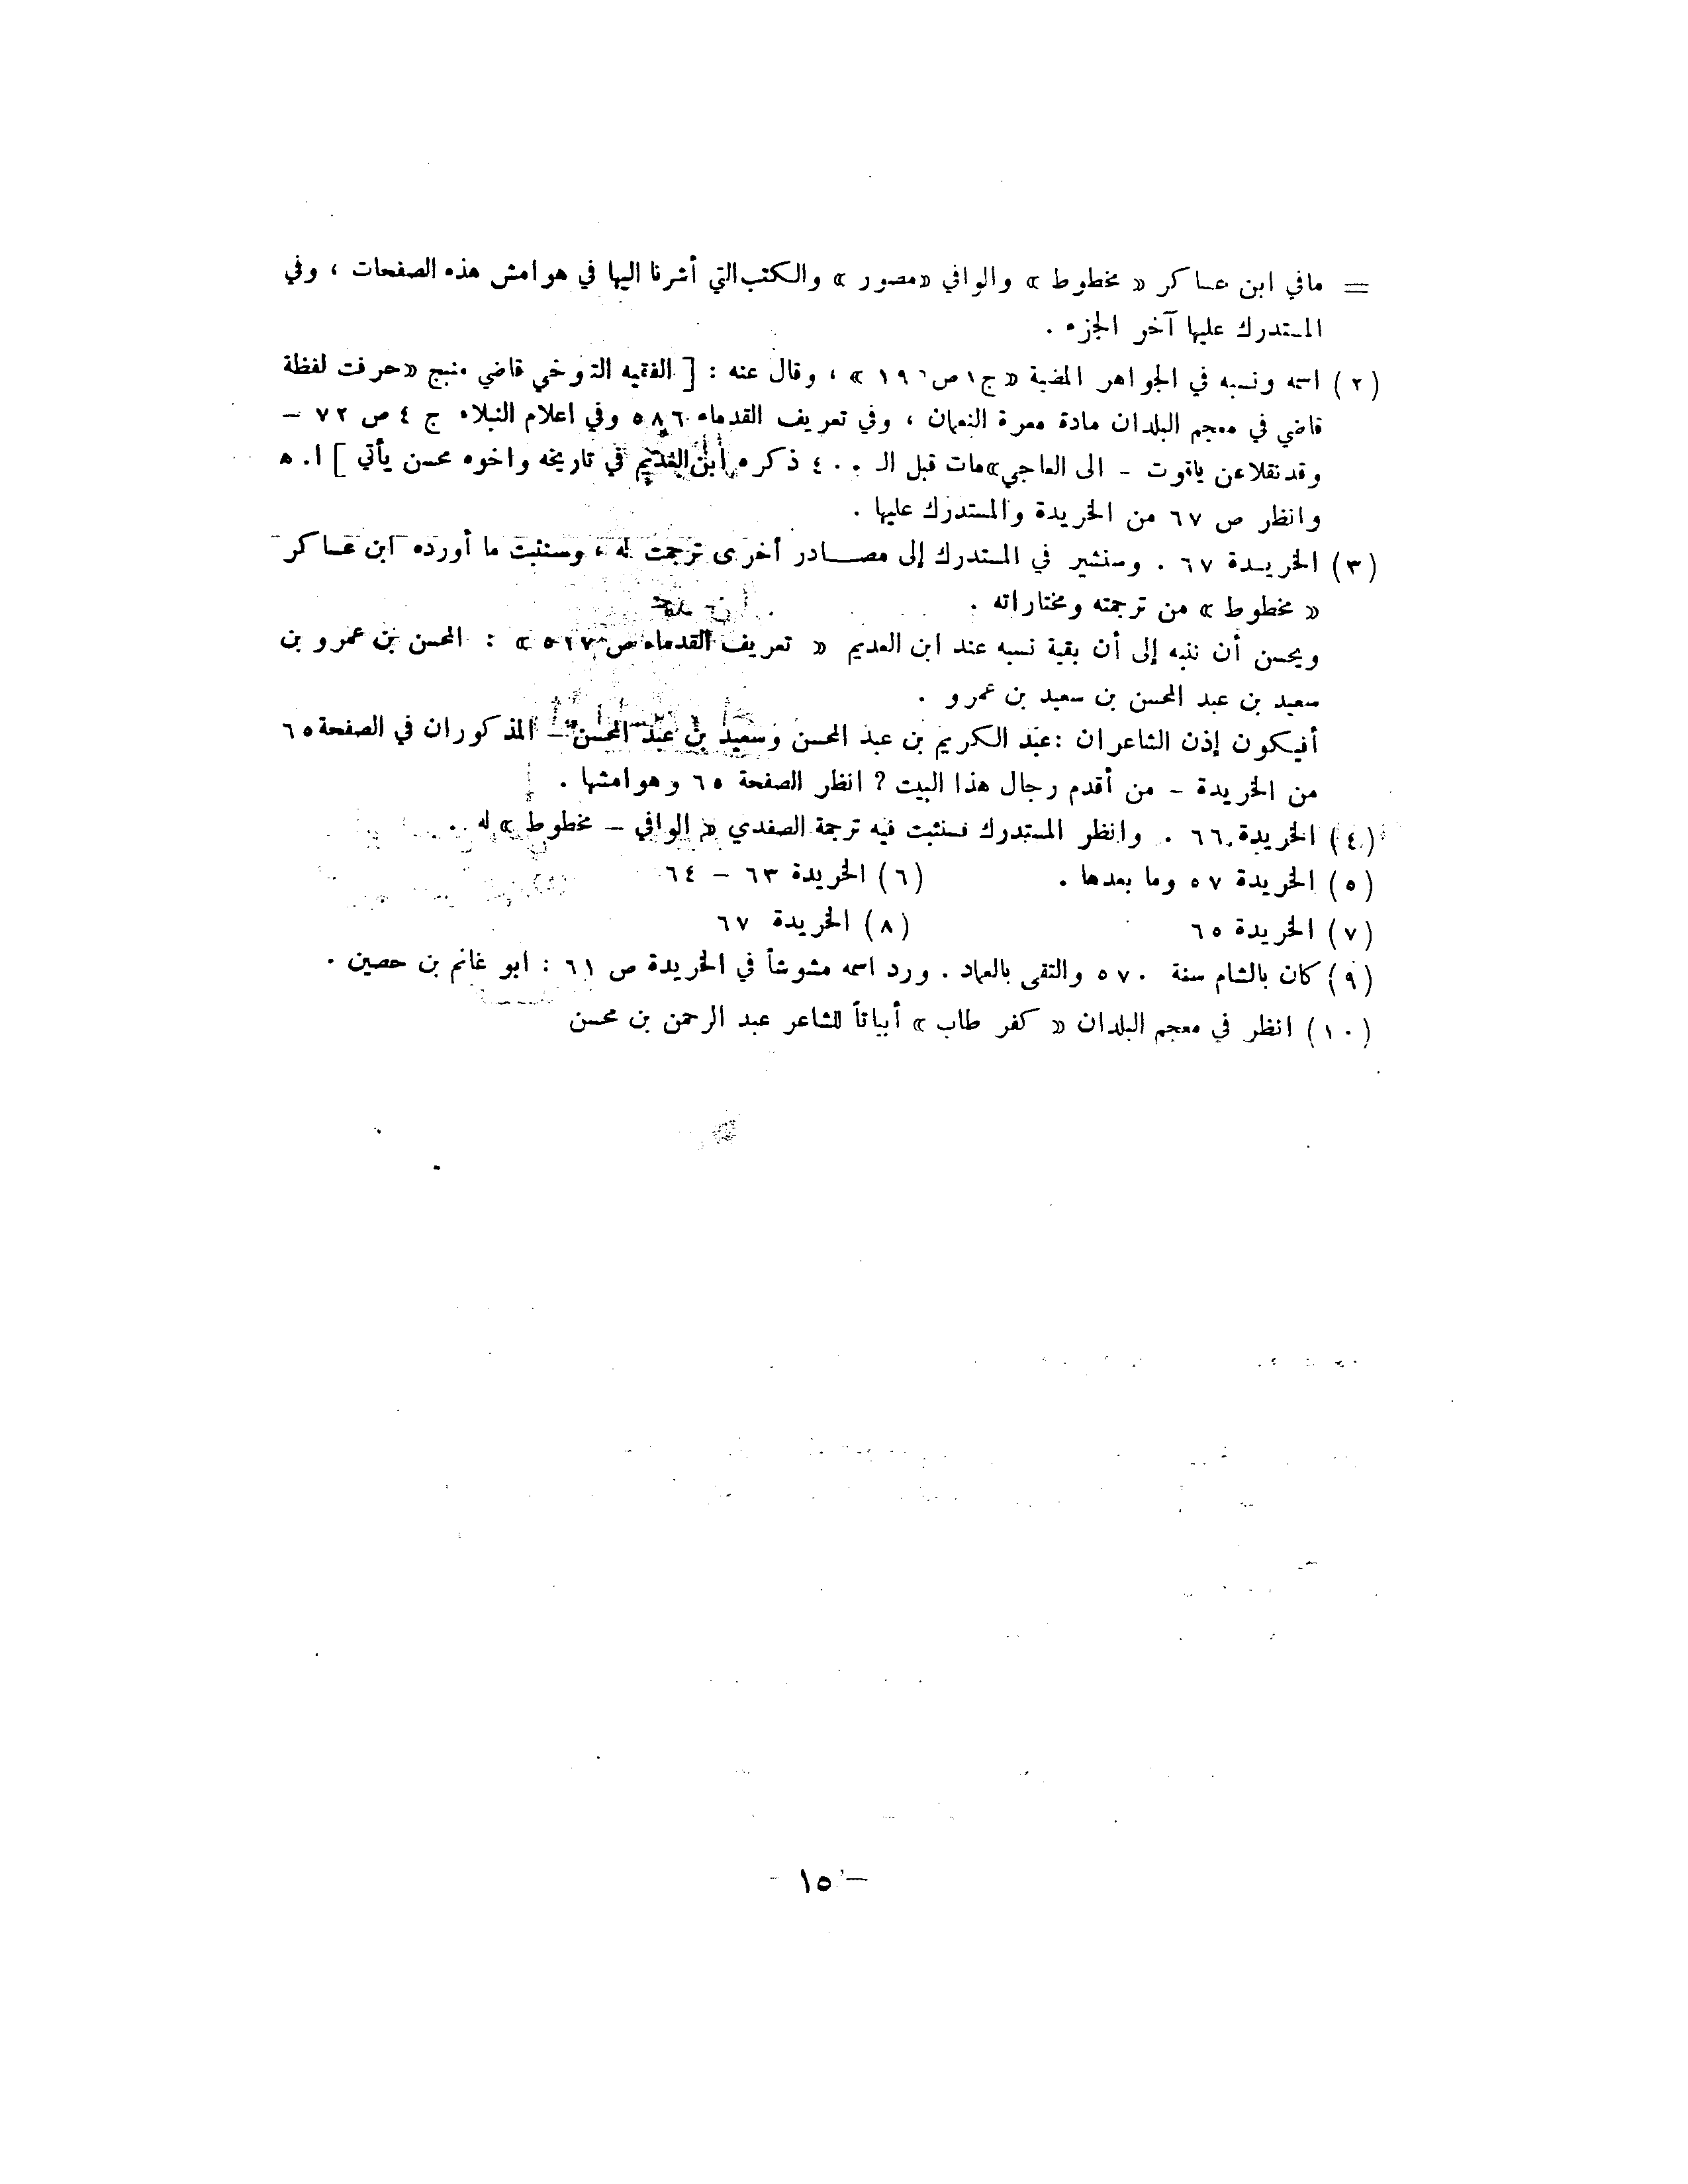 = مافي ابن عساكر « مخطوط » والوافي «مصور » والكتب التي أشرنا اليها في هوامش هذه الصفحات ، وفي
المستدرك عليها آخر الجزء .
(٢) اسمه ونسبه في الجواهر المضية «ج١ ص ١٩٦ » ، وقال عنه : [ الفقيه التنوخي قاضي منبج «حرفت لفظة
قاضي في معجم البلدان مادة معرة النعمان ، وفي تعريف القدماء ٥٨٦ وفي اعلام النبلاء ج ٤ ص ٧٢ –
وقد نقلا عن ياقوت – الى العاجي» مات قبل الـ ٤٠٠ ذكره ابن العديم في تاريخه واخوه محسن يأتي ] ا. ه
وانظر ص ٦٧ من الخريدة والمستدرك عليها .
(٣) الخريدة ٦٧ . وسنشير في المستدرك إلى مصـــادر أخرى ترجمت له ، وسنثبت ما أورده ابن عساكر
« مخطوط » من ترجمته ومختاراته .
ويحسن أن ننبه إلى أن بقية نسبه عند ابن العديم « تعريف القدماء ص ٥١٧ » : المحسن بن عمرو بن
سعيد بن عبد المحسن بن سعيد بن عمرو .
أفيكون إذن الشاعران : عبد الكريم بن عبد المحسن وسعيد بن عبد المحسن – المذكوران في الصفحة ٦٥
من الخريدة – من أقدم رجال هذا البيت ? انظر الصفحة ٦٥ وهوامشها .
(٤) الخريدة ٦٦ . وانظر المستدرك فسنثبت فيه ترجمة الصفدي « الوافي – مخطوط » له .
(٥) الخريدة ٥٧ وما بعدها . (٦) الخريدة ٦٣ – ٦٤
(٧) الخريدة ٦٥ (٨) الخريدة ٦٧
(٩) كان بالشام سنة ٥٧٠ والتقى بالعماد . ورد اسمه مشوشاً في الخريدة ص ٦١ : ابو غانم بن حصين .
(١٠) انظر في معجم البلدان « كفر طاب » أبياتاً للشاعر عبد الرحمن بن محسن
– ١٥ –